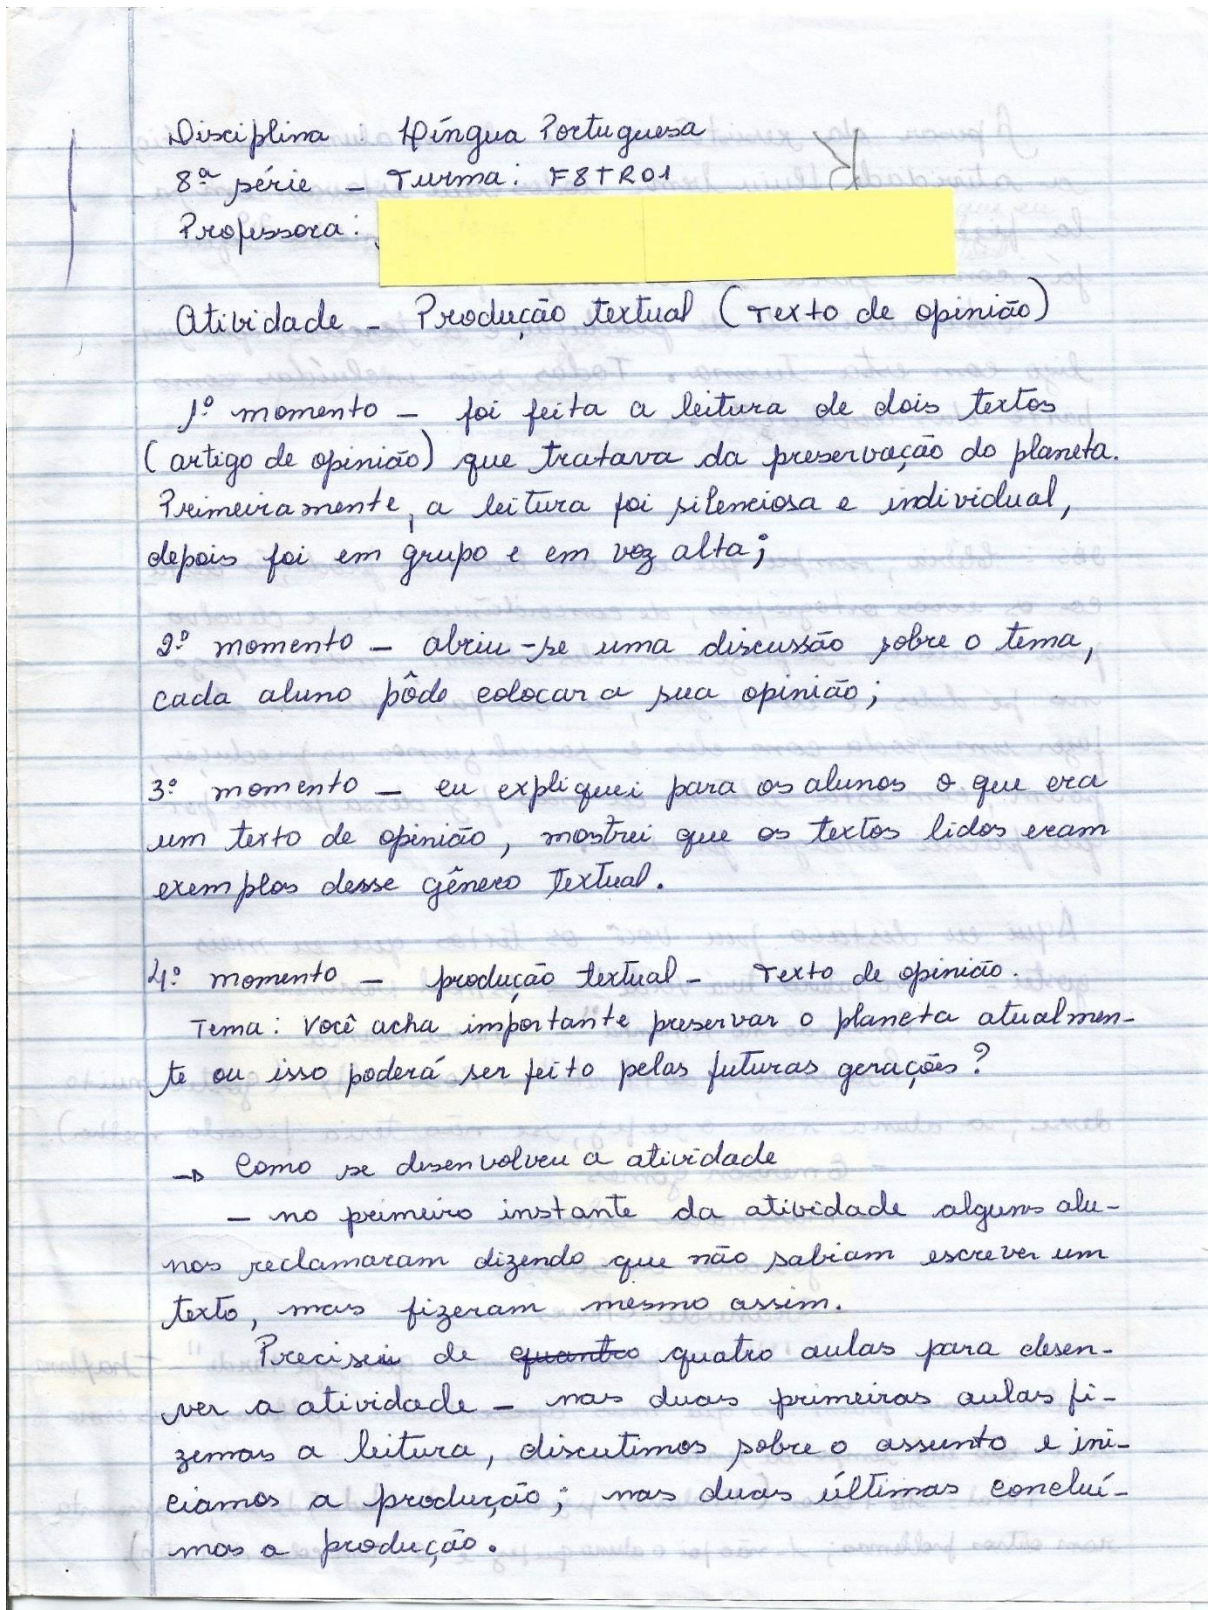 Disciplina: Língua Portuguesa
8ª série - Turma: F8TR01
Professora:
Atividade - Produção textual (Texto de opinião)
1º momento - foi feita a leitura de dois textos
(artigo de opinião) que tratava da preservação do planeta.
Primeiramente, a leitura foi silenciosa e individual,
depois foi em grupo e em voz alta;
2º momento - abriu-se uma discussão sobre o tema,
cada aluno pôde colocar a sua opinião;
3º momento - eu expliquei para os alunos o que era
um texto de opinião, mostrei que os textos lidos eram
exemplos desse gênero textual.
4º momento - produção textual - Texto de opinião.
Tema: Você acha importante preservar o planeta atualmen-
te ou isso poderá ser feito pelas futuras gerações?
→ Como se desenvolveu a atividade
- no primeiro instante da atividade alguns alu-
nos reclamaram dizendo que não sabiam escrever um
texto, mas fizeram mesmo assim.
Precisei de quantro quatro aulas para desen-
ver a atividade - nas duas primeiras aulas fi-
zemos a leitura, discutimos sobre o assunto e ini-
ciamos a produção; nas duas últimas concluí-
mos a produção.